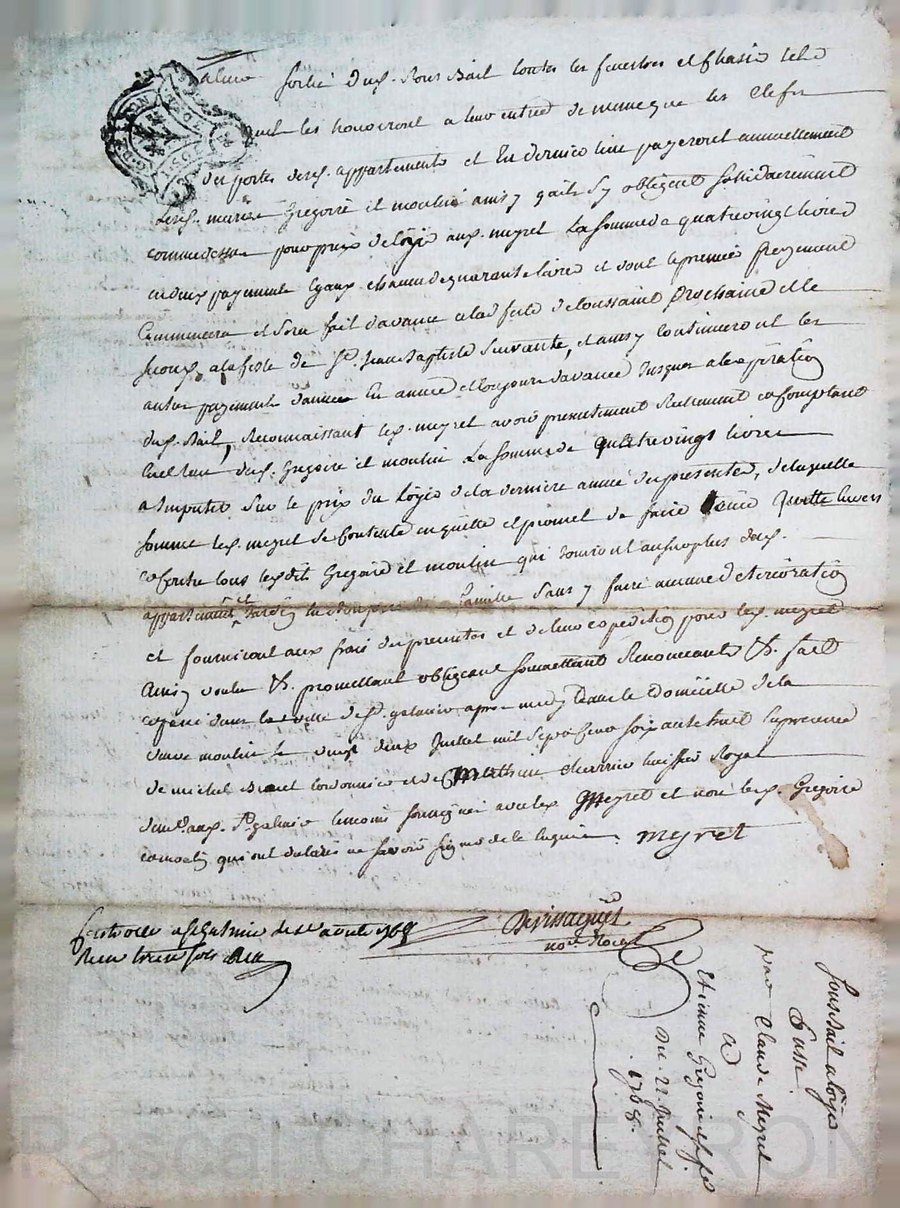 sortie dud. sous bail toutes les fenestres et chasis
quil les trouveront a leur entrée de meme que les clefs
des portes desd. appartements et En dernier lieu payeront annuellement
Lesd. mariés Gregoire et moulin ainsy quils sy obligent solidairement
comme dessus pour prix de logis aud. meyret La somme de quatrevingt livres
en deux payements Egaux chacun de quarante livres et dont le premier payement
Commencera et sera fait davance a la feste de toussaint prochaine et le
second a la feste de St. Jean Baptiste suivante, et ainsy continueront les
autres payements dannée En année et toujours davance jusques a lexpiration
dud. Bail, Reconnaissant led. meyret avoir presentement Reellement et comptant
desd. Gregoire et moulin La somme de quatrevingts livres
a Imputer sur le prix du logis de la derniere année des presentes, de laquelle
somme led. meyret se contente en quitte et promet de faire tenir quitte envers
et contre tous lesdits Gregoire et moulin qui jouiront desd.
appartements et jardin en bon pere de famille sans y faire aucune deterioration
et fourniront aux frais des presentes et de leur expedition pour led. meyret
Ainsy voulu &. promettant obligeant soumettant Renonceant &. fait
et passé dans la ville de St. galmier apres midy dans le Domicille de la
veuve moulin le vingt deux Juillet mil sept cent soixante huit En presence
de michel cordonnier et de Mathieu cherrier huissier Royal
demt. aud. St. galmier temoins soussignés avec led. Meyret et non lesd. Gregoire
et moulin qui ont declarés ne savoir signer de ce enquis. meyret
Controllé a St Galmier le 1768
Recu treize sols
Devissaguet
nore. Royal
Sous bail a logis
Passé
par Claude Meyret
a
Etienne Gregoire
Du 22 Juillet
1768.
Pascal CHAREYRON